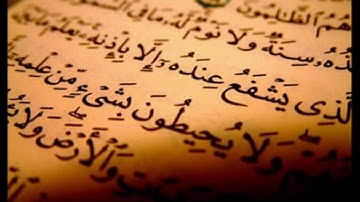 هُمُ الظَّٰلِمُونَ
سِنَةٌ وَلَا نَوْمٌ لَّهُۥ مَا فِي
الَّذِي يَشْفَعُ عِندَهُۥٓ إِلَّا بِإِذْنِهِۦ يَعْلَمُ مَا
وَلَا يُحِيطُونَ بِشَيْءٍ مِّنْ عِلْمِهِۦٓ
وَالْأَرْضَ وَلَا